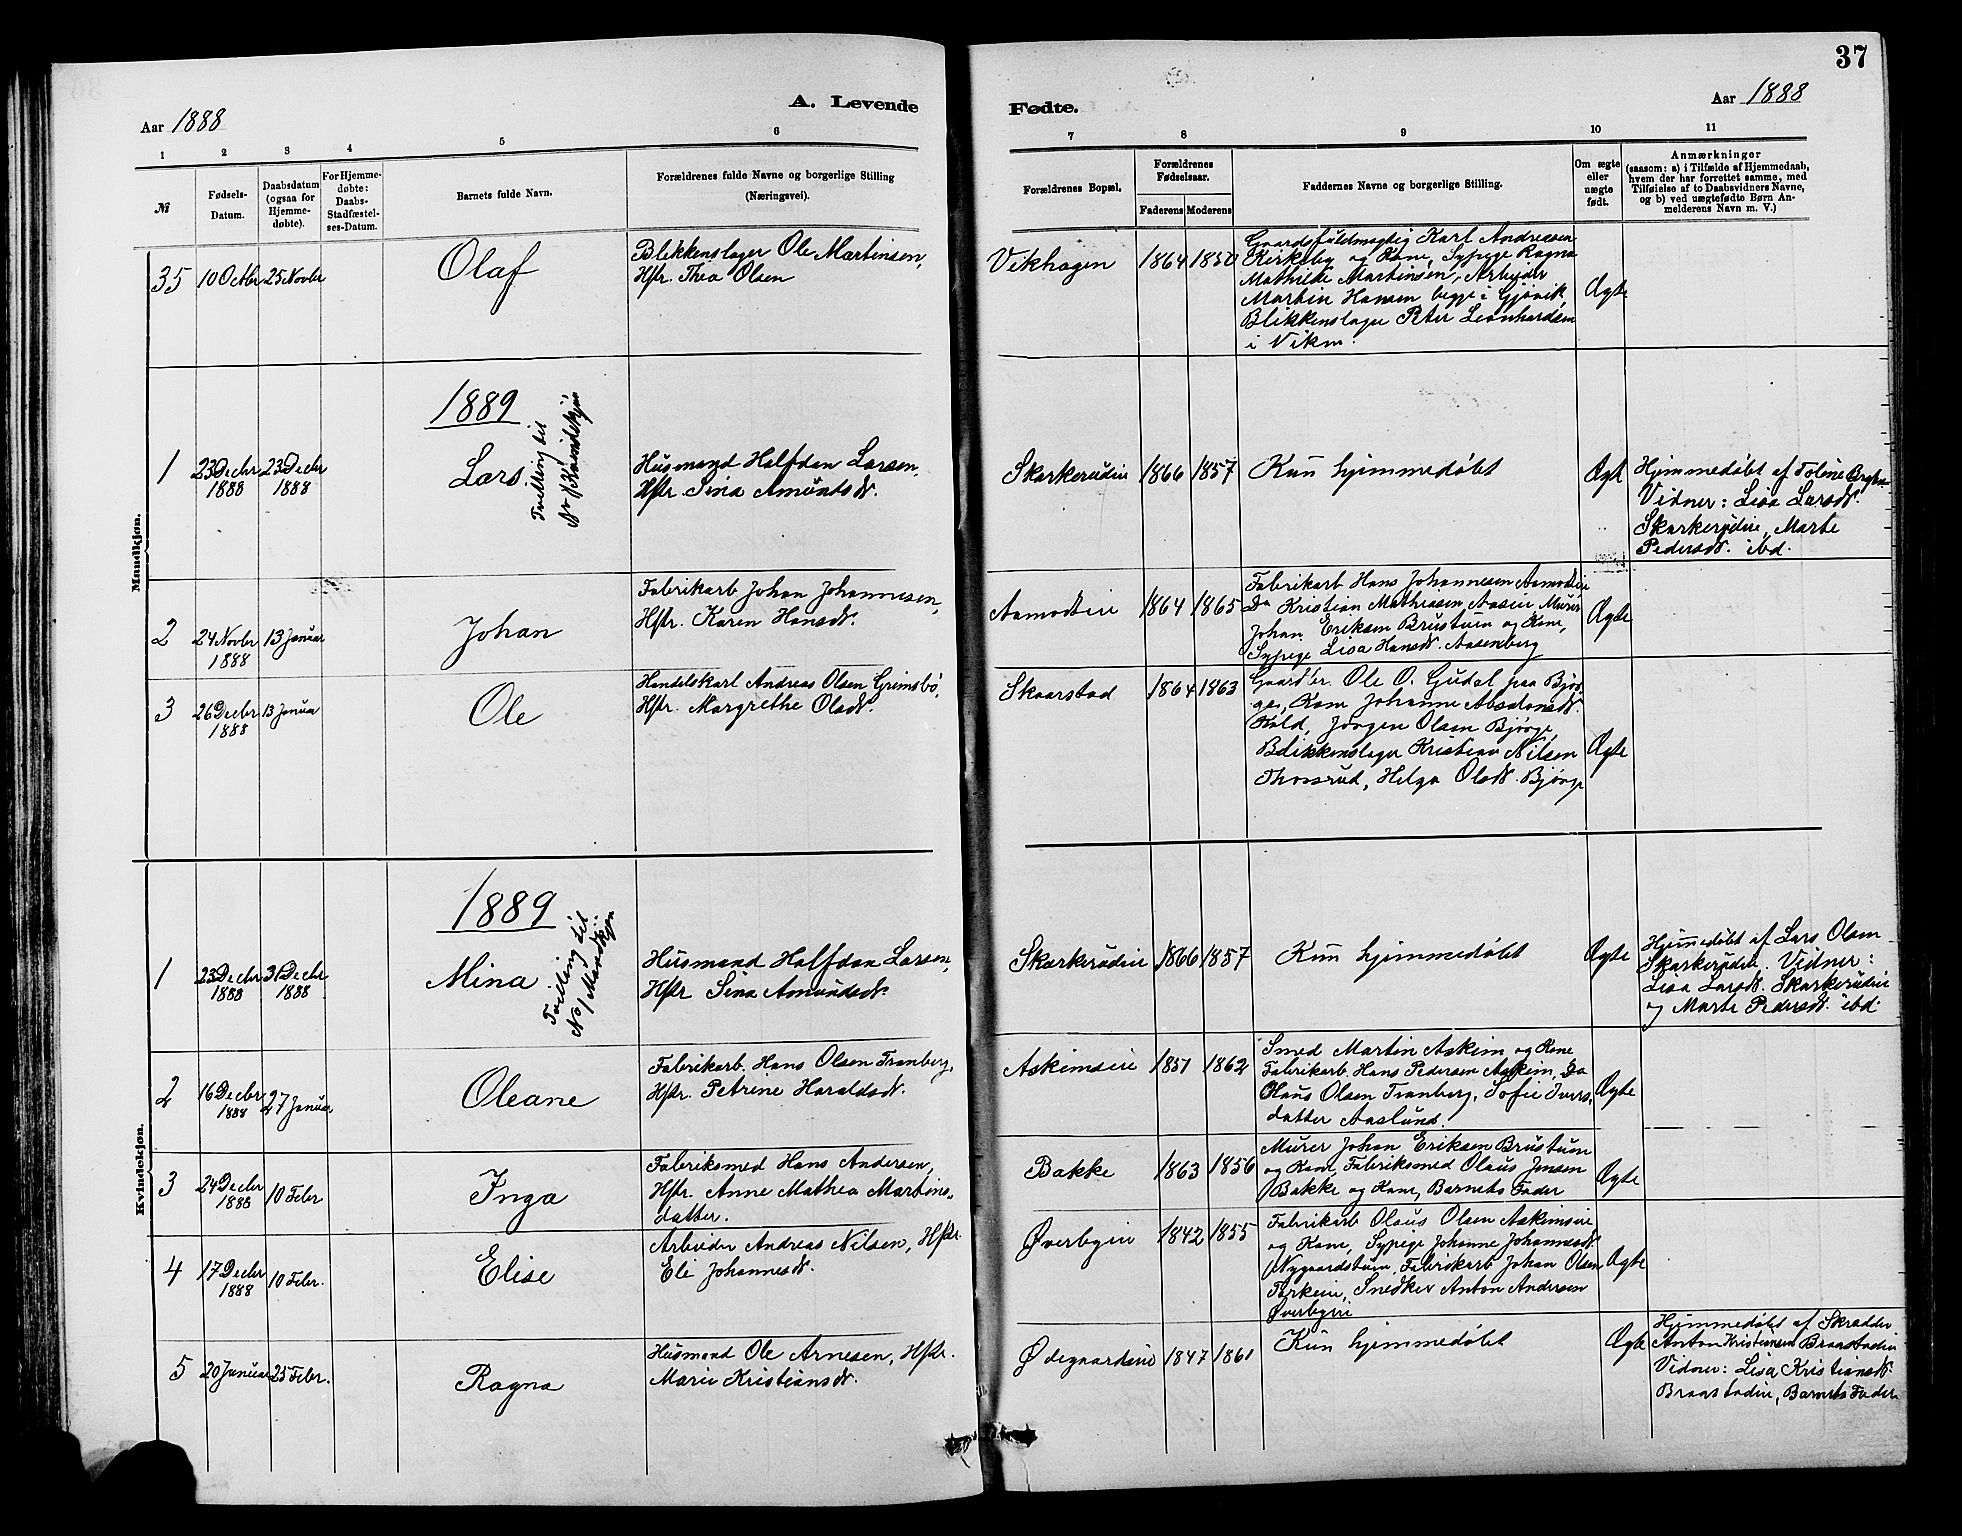 37
Aar 1888
A. Levende
Fødte.
Aar 1888
1 2 3 4 5 6 7 8 9 10 11
№
Fødsels-
Datum.
Daabsdatum
(ogsaa for
Hjemme-
døbte).
For Hjemme-
døbte:
Daabs-
Stadfæstel-
ses-Datum.
Barnets fulde Navn.
Forældrenes fulde Navne og borgerlige Stilling
(Næringsvei).
Forældrenes Bopæl.
Forældrenes
Fødselsaar.
Faderens Moderens
Faddernes Navne og borgerlige Stilling.
Om ægte
eller
uægte
født.
Anmærkninger
(saasom: a) i Tilfælde af Hjemmedaab,
hvem der har forrettet samme, med
Tilføielse af to Daabsvidners Navne,
og b) ved uægtefødte Børn An-
melderens Navn m. V.)
Mandkjøn.
35 10 Octbr 25 Novbr
Olaf
Blikkenslager Ole Martinsen,
Hstr. Thea Olsen
Vikhagen 1864 1850
Gaardsfuldmægtig Karl Andreasen
Kirkeby og Kone, Sypige Ragna
Mathilde Martinsen, Arbeider
Martin Hansen begge i Gjøvik,
Blikkenslager Peter Leonhardsen
i Viken.
Ægte
1889
1 23 Decbr 23 Decbr
1888 1888
Lars
Tvilling til
No 1 Kvindekjøn
Husmand Halfdan Larsen,
Hstr. Sina Amundsdt.
Skarkerudeie 1866 1857
Kun hjemmedøbt
Ægt
Hjemmedøbt af Toline
Vidner: Lisa Larsdt.
Skarkerudeie, Marte
Pedersdt. ibd.
2 24 Novbr 13 Januar
1888
Johan
Fabrikarb Johan Johannesen,
Hstr. Karen Hansdt.
Aamodteie 1864 1865
Fabrikarb Hans Johannesen Aamodteie
Do Kristian Mathiasen Aaseie, Murer
Johan Eriksen Brustuen og Kone,
Sypige Lisa Hansdt. Aasenberg
Ægte
3 26 Decbr 13 Januar
1888
Ole
Handelskarl Andreas Olsen Grimsbö,
Hstr. Margrethe Olsdt.
Skaarstad 1864 1863
Gaardbr. Ole O. Gudal paa Bjør-
ge, Kone Johanne Absalonsdt.
Kold, Jørgen Olsen Bjørge,
Blikkenslager Kristian Nilsen
Thosrud, Helga Olsdt. Bjørge
Ægte
Kvindekjøn.
1889
1 23 Decbr 31 Decbr
1888 1888
Mina
Tvilling til
No 1 Mandkjøn
Husmand Halfdan Larsen,
Hstr Sina Amundsdt.
Skarkerudeie 1866 1857
Kun hjemmedøbt
Ægte
Hjemmedøbt af Lars Olsen
Skarkerudeie. Vidner:
Lisa Larsdt. Skarkerudeie
og Marte Pedersdt. ibd.
2 16 Decbr 27 Januar
1888
Oleane
Fabrikarb. Hans Olsen Tranberg,
Hstr. Petrine Haraldsdt.
Askimseie 1851 1862
Smed Martin Askim og Kone
Fabrikarb. Hans Pedersen Askim, Do
Hans Olsen Tranberg, Sofie Ivers-
datter Aaslund.
Ægte
3 24 Decbr 10 Febr
1888
Inga
Fabriksmed Hans Andersen,
Hstr. Anne Mathea Martins-
datter.
Bakke 1863 1856
Murer Johan Eriksen Brustuen
og Kone, Fabriksmed Olaus Jensen
Bakke og Kone, Barnets Fader
Ægte
4 17 Decbr 10 Febr.
1888
Elise
Arbeider Andreas Nilsen, Hstr.
Eli Johannesdt.
Øverbyeie 1842 1855
Fabrikarb Olaus Olsen Askimseie
og Kone, Sypige Johanne Johannesdt.
Nygaardstuen, Fabrikarb Johan Olsen
Torkeie, Snedker Anton Andersen
Øverbyeie
Ægte
5 20 Januar 25 Febr.
Ragna
Husmand Ole Arnesen, Hstr.
Marie Kristiansdt.
Ødegaardeie 1847 1861
Kun hjemmedøbt
Ægte
Hjemmedøbt af Skrædder
Anton Kristiansen Braastadeie
Vidner: Lisa Kristiansdt.
Braastadeie, Barnets Fader